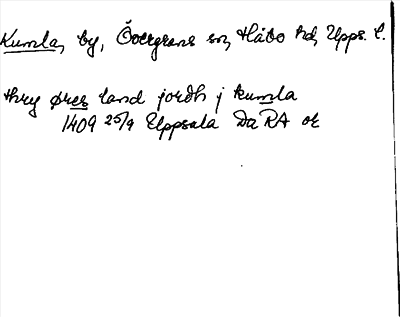 Kumla, by, Övergrans sn, Håbo hd, Upps. l.
thry øres land jordh j kumla
1409 25/9 Uppsala Da RA or